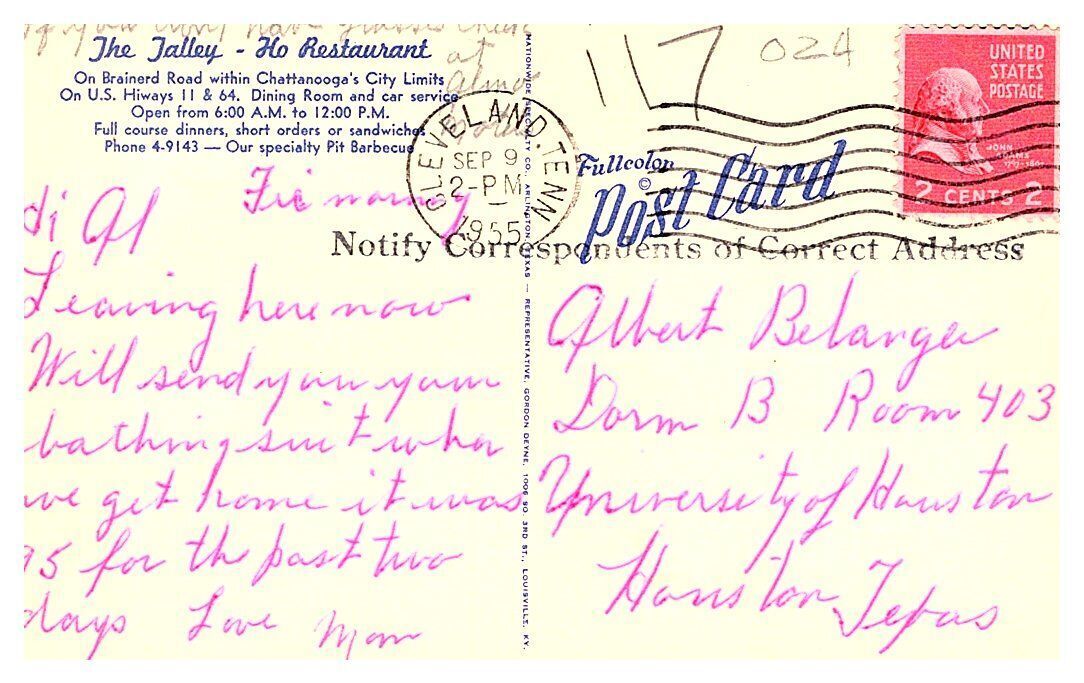 if you don't have
at
The Talley - Ho Restaurant
On Brainerd Road within Chattanooga's City Limits
On U.S. Hiways 11 & 64. Dining Room and car service
Open from 6:00 A.M. to 12:00 P.M.
Full course dinners, short orders or sandwiches
Phone 4-9143 — Our specialty Pit Barbecue
Fri morning
Hi Al
Leaving here now
Will send you your
bathing suit when
we get home it was
95 for the past two
days Love Mom
NATIONWIDE SPECIALTY CO., ARLINGTON, TEXAS — REPRESENTATIVE, GORDON DEYNE, 1006 SO. 3RD ST., LOUISVILLE, KY.
117
024
CLEVELAND, TENN.
SEP 9
2-PM
1955
UNITED
STATES
POSTAGE
JOHN
ADAMS
2 CENTS 2
Fullcolor
©
Post Card
Notify Correspondents of Correct Address
Albert Belanger
Dorm B Room 403
University of Houston
Houston, Texas